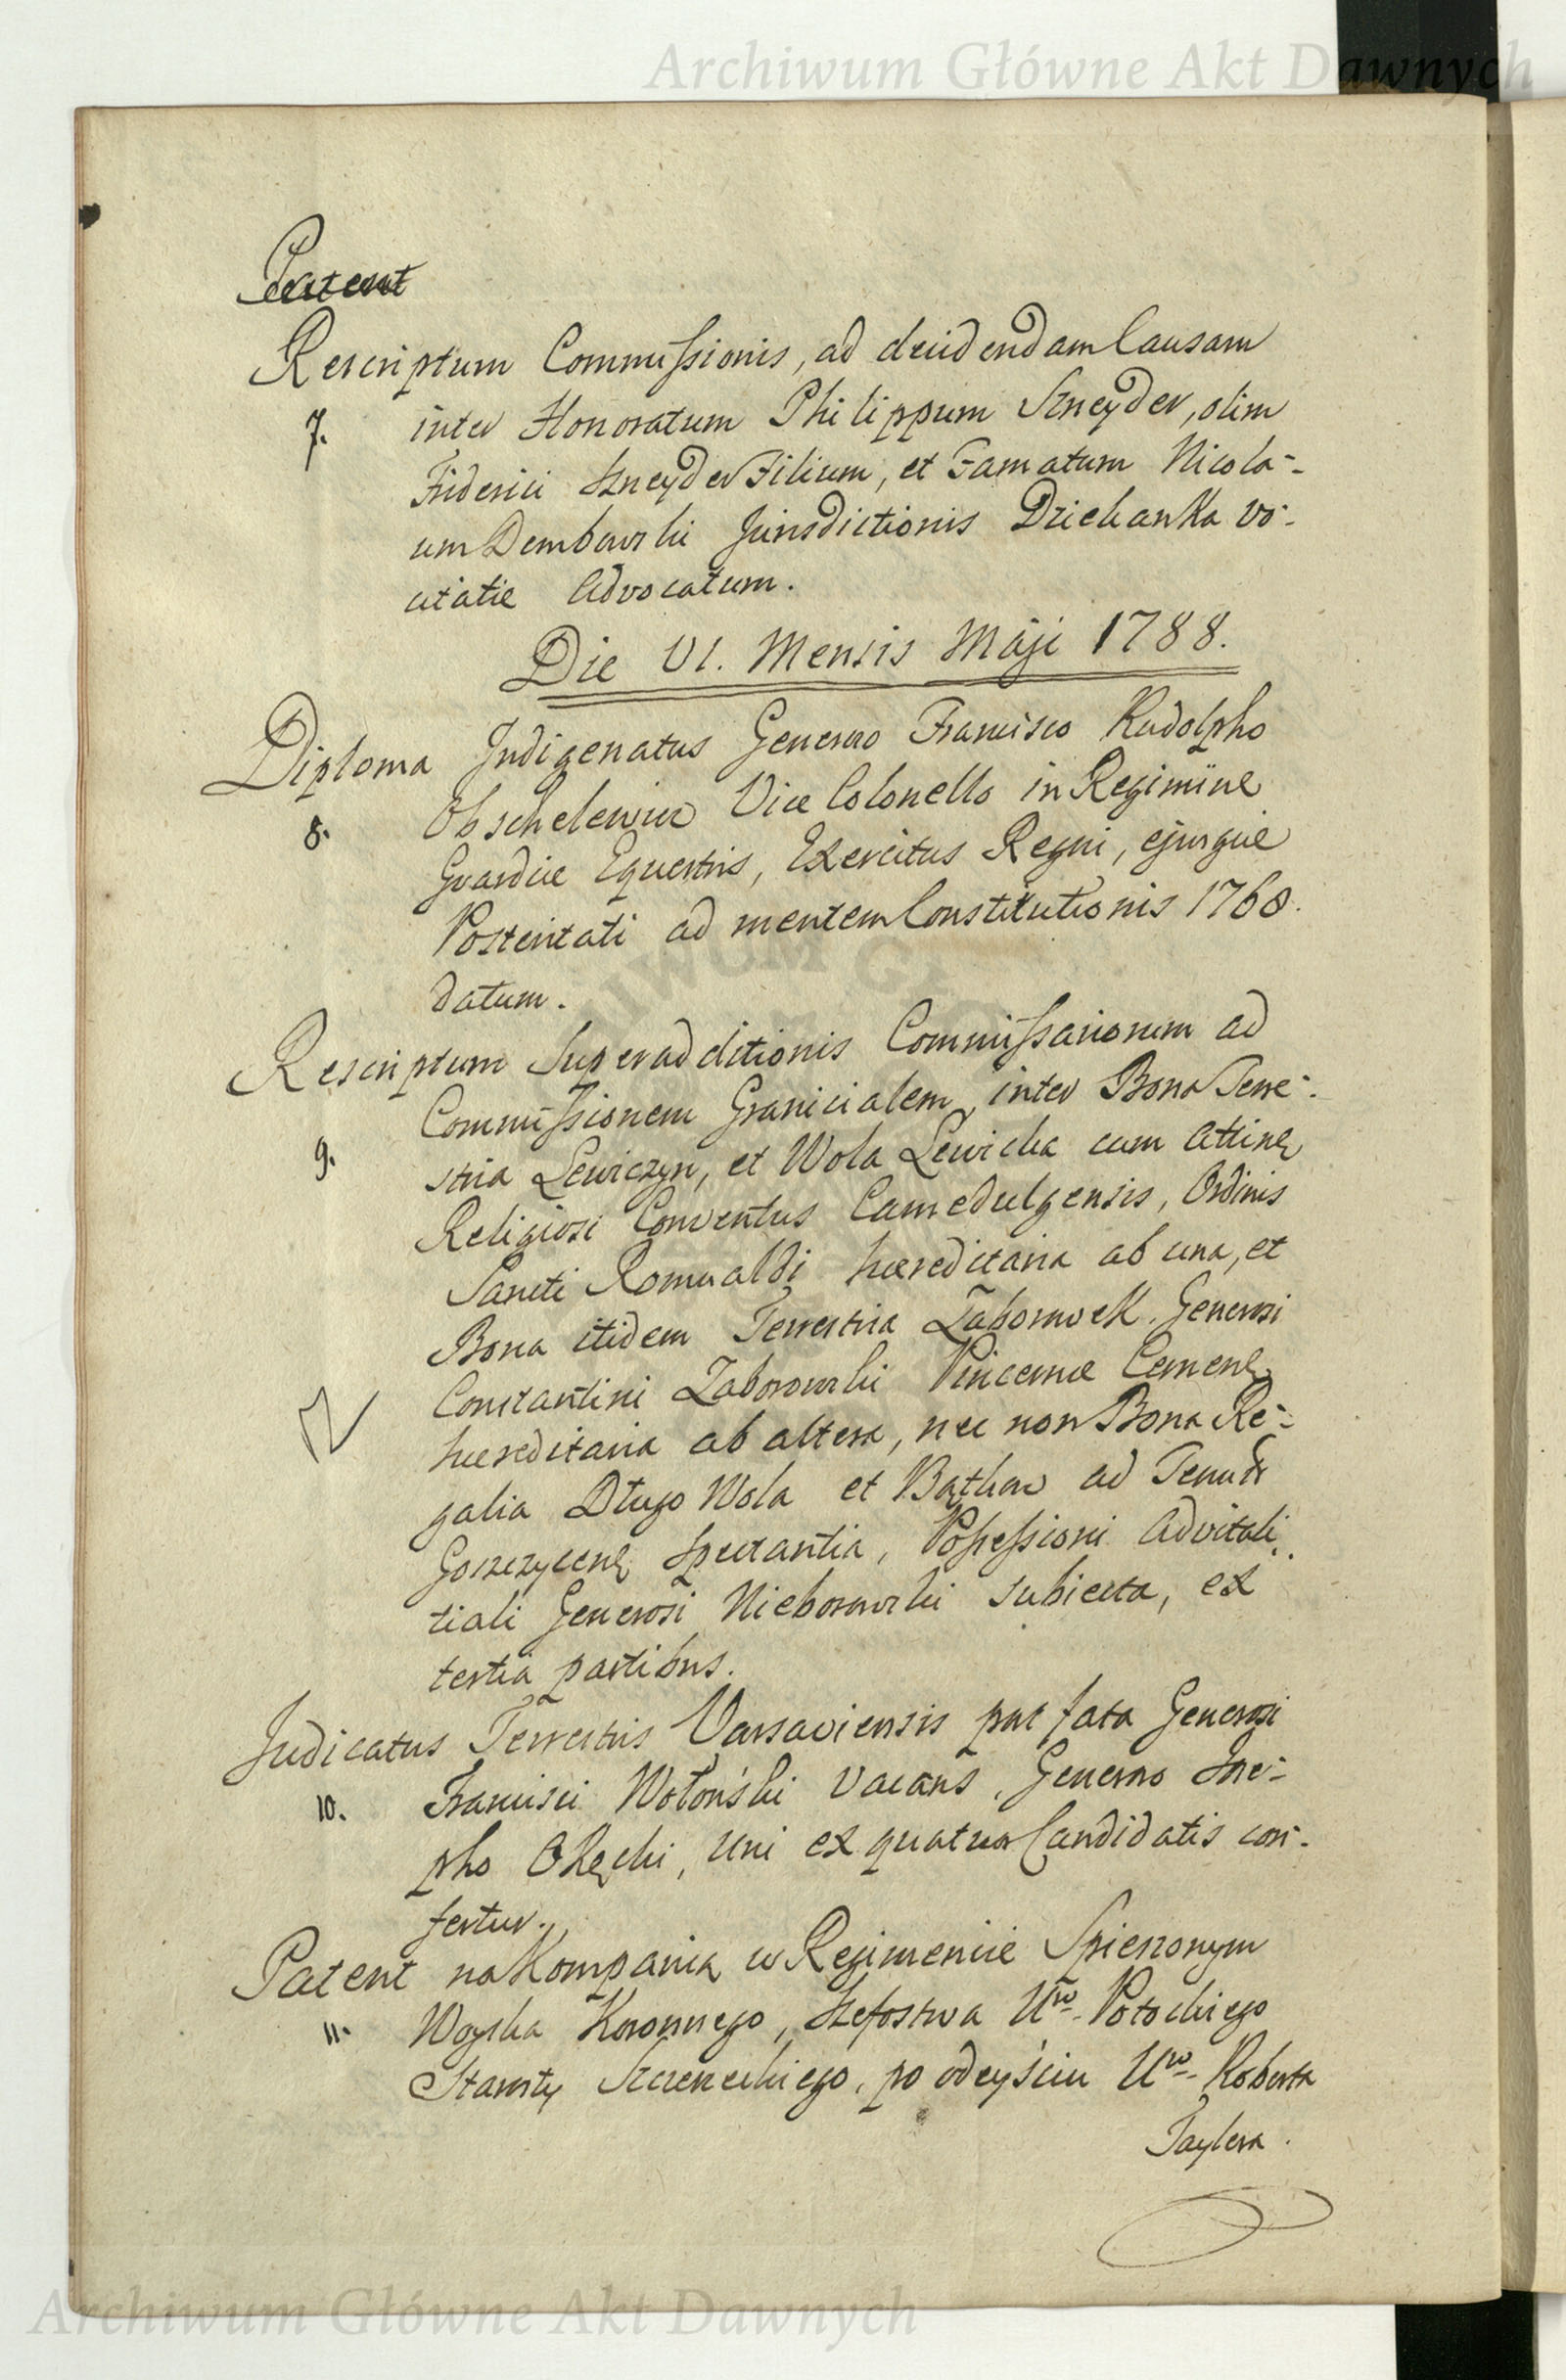 Archiwum Główne Akt Dawnych
Patent
Rescriptum Commissionis, ad decidendam Causam
7. inter Honoratum Philippum Szneyder, olim
Friderici Szneyder Filium, et Famatum Nicola-
um Dembowski Jurisdictionis Dziekanka vo-
citatæ Advocatum.
Die VI. Mensis Maji 1788.
Diploma Indigenatus Generoso Francisco Rudolpho
8. Obschelewicz Vice Colonello in Regimine
Gvardiæ Equestris, Exercitus Regni, ejusque
Posteritati ad mentem Constitutionis 1768.
datum.
Rescriptum Superadditionis Commissariorum ad
Commissionem Granicialem inter Bona Terre-
9. stria Lewiczyn, et Wola Lewicka cum Attinę
Religiosi Conventus Camedulgensis, Ordinis
Sancti Romualdi hæreditaria ab una, et
Bona itidem Terrestria Zaborowek Generosi
Constantini Zaborowski Pincernæ Cernenę
hæreditaria ab altera, nec non Bona Re-
galia Długo Wola et Bątkow ad Tenutę
Goszczycenę Spectantia, Possessioni Advitali-
tiali Generosi Nieborowski subiecta, ex
tertia partibus.
Judicatus Terrestris Varsaviensis per fata Generosi
10. Francisci Wotoński vacans, Generoso Jose-
pho Okęcki, uni ex quatuor Candidatis con-
fertur.
Patent na Kompanią w Regimencie Spieszonym
11. Woyska Koronnego, Szefostwa Uro. Potockiego
Starosty Szczerzeckiego, po odeyściu Uro. Roberta
Taylera.
Archiwum Główne Akt Dawnych